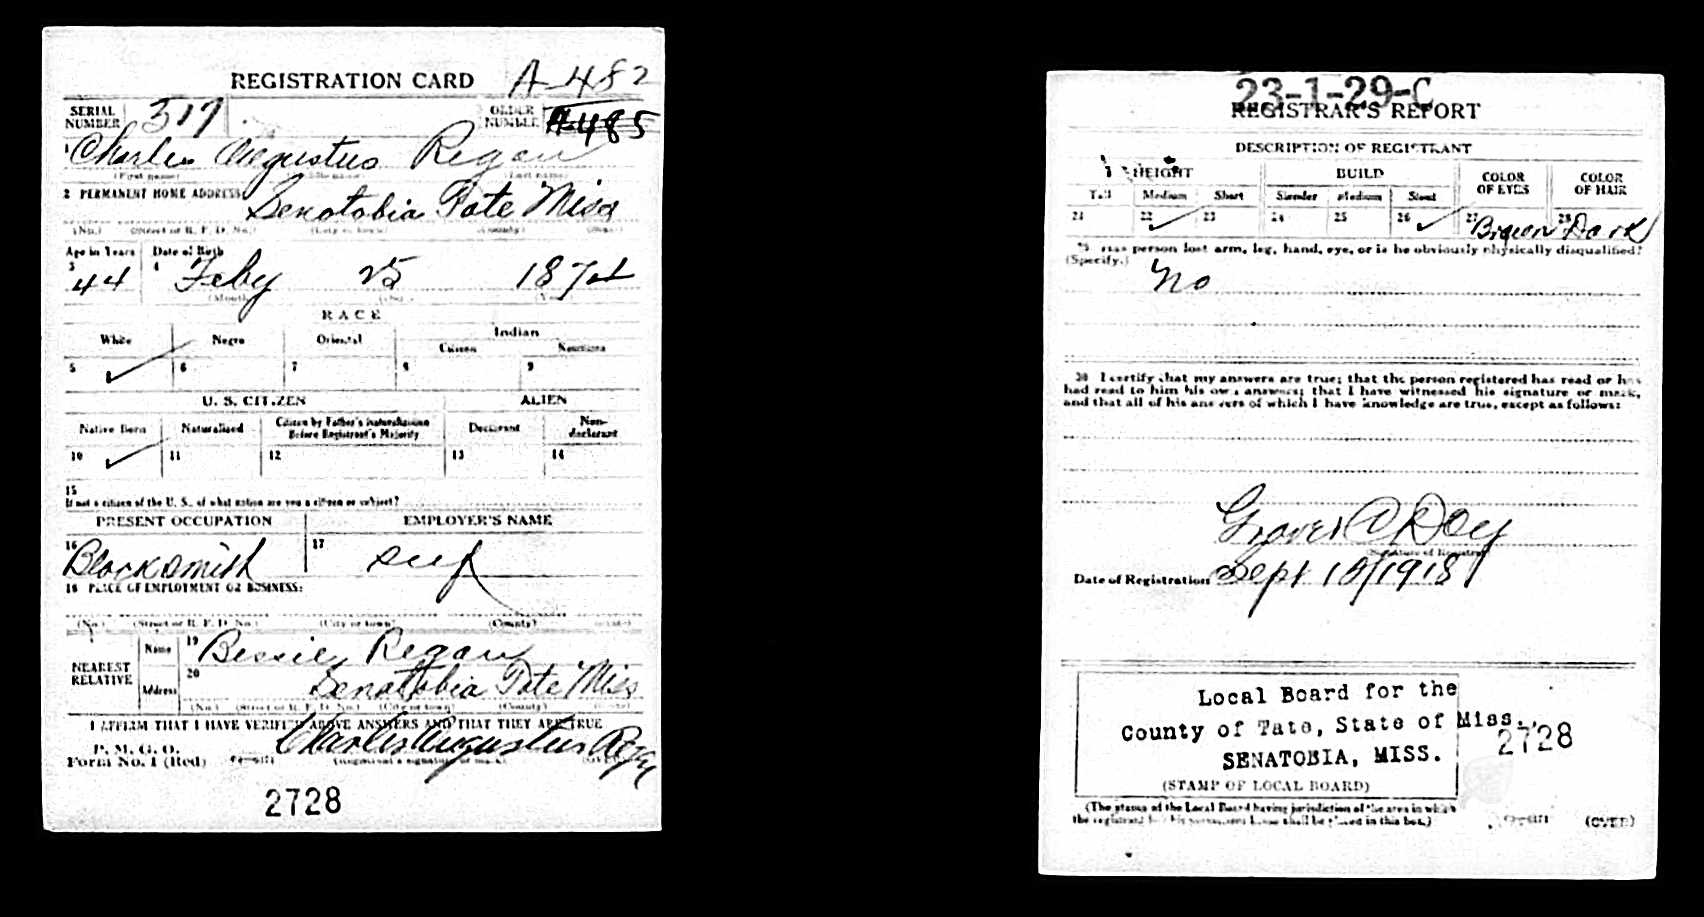 REGISTRATION CARD A-482
SERIAL NUMBER 317 ORDER NUMBER A-485
1 Charles Augustus Regan
(First name) (Middle name) (Last name)
2 PERMANENT HOME ADDRESS
Senatobia Tate Miss
(No.) (Street or R. F. D. No.) (City or town) (County) (State)
Age in Years Date of Birth
3 44 4 Feby 25 1874
(Month) (Day) (Year)
RACE
White Negro Oriental Indian
Citizen Noncitizen
5 6 7 8 9
U. S. CITIZEN ALIEN
Native Born Naturalized Citizen by Father's Naturalization Before Registrant's Majority Declarant Non-declarant
10 11 12 13 14
15
If not a citizen of the U. S., of what nation are you a citizen or subject?
PRESENT OCCUPATION EMPLOYER'S NAME
16 Blacksmith 17 self
18 PLACE OF EMPLOYMENT OR BUSINESS:
(No.) (Street or R. F. D. No.) (City or town) (County) (State)
NEAREST RELATIVE Name 19 Bessie Regan
Address 20 Senatobia Tate Miss
(No.) (Street or R. F. D. No.) (City or town) (County) (State)
I AFFIRM THAT I HAVE VERIFIED ABOVE ANSWERS AND THAT THEY ARE TRUE
P. M. G. O.
Form No. 1 (Red) Charles Augustus Regan
(Registrant's signature or mark) (OVER)
2728
23-1-29-C
REGISTRAR'S REPORT
DESCRIPTION OF REGISTRANT
HEIGHT BUILD COLOR OF EYES COLOR OF HAIR
Tall Medium Short Slender Medium Stout
21 22 23 24 25 26 27 Brown 28 Dark
29 Has person lost arm, leg, hand, eye, or is he obviously physically disqualified?
(Specify.) No
30 I certify that my answers are true; that the person registered has read or has
had read to him his own answers; that I have witnessed his signature or mark,
and that all of his answers of which I have knowledge are true, except as follows:
Grover C Day
(Signature of Registrar)
Date of Registration Sept 12/1918
Local Board for the
County of Tate, State of Miss.,
SENATOBIA, MISS.
2728
(STAMP OF LOCAL BOARD)
(The stamp of the Local Board having jurisdiction of the area in which
the registrant has his permanent home shall be placed in this box.)
(OVER)